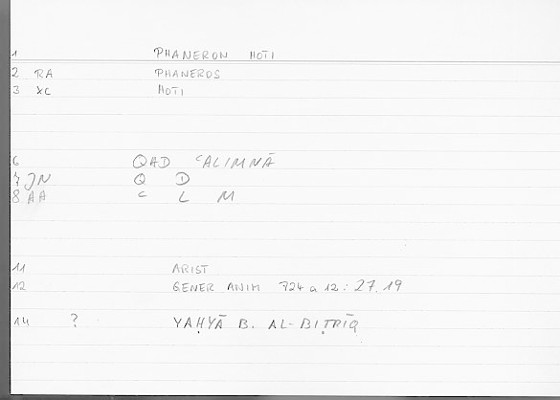 1 PHANERON HOTI
2 RA PHANEROS
3 XC HOTI
6 QAD ʿALIMNĀ
7 JN Q D
8 AA ʿ L M
11 ARIST
12 GENER ANIM 724 a 12 : 27.19
14 ? YAḤYĀ B. AL-BIṬRĪQ